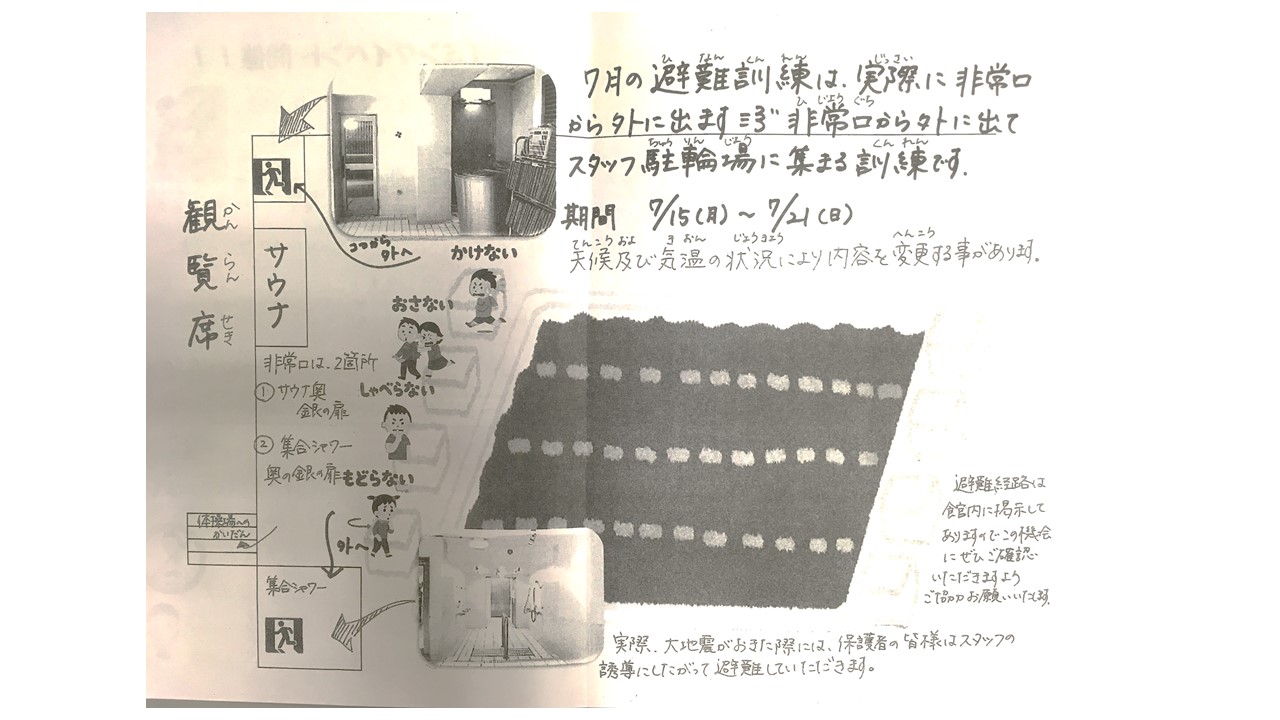 7月の避難訓練は、実際に非常口
から外に出ます!!3つ非常口から外に出て
スタッフ駐輪場に集まる訓練です。
期間 7/15(月)～7/21(日)
天候及び気温の状況により内容を変更する事があります。
観覧席
かんらんせき
サウナ
ココから
外へ
かけない
おさない
しゃべらない
もどらない
非常口は、2箇所
①サウナ奥
銀の扉
②集合シャワー
奥の銀の扉
体操場への
かいだん
外へ
集合シャワー
避難経路は
館内に掲示して
ありますのでこの機会
にぜひご確認
いただきますよう
ご協力お願いいたします。
実際、大地震がおきた際には、保護者の皆様はスタッフの
誘導にしたがって避難していただきます。